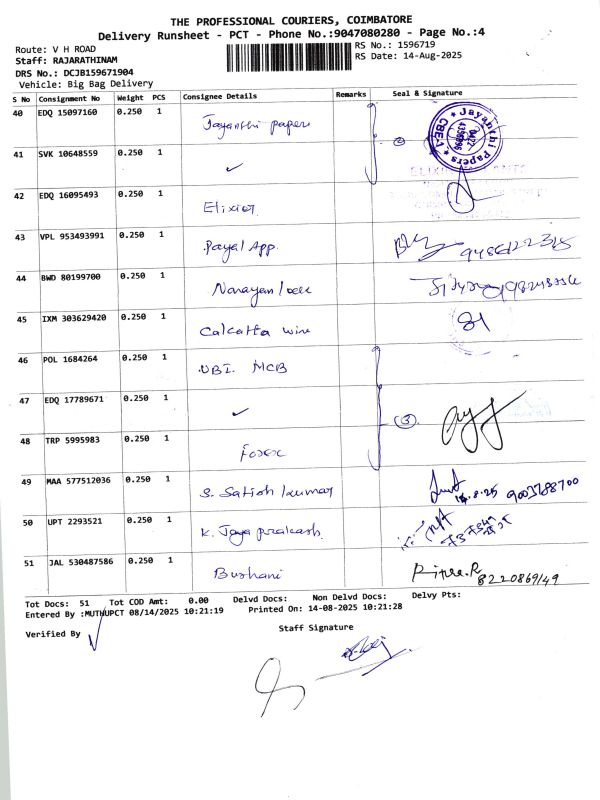 THE PROFESSIONAL COURIERS, COIMBATORE
Delivery Runsheet - PCT - Phone No.:9047080280 - Page No.:4
Route: V H ROAD
RS No.: 1596719
Staff: RAJARATHINAM
RS Date: 14-Aug-2025
DRS No.: DCJB159671904
Vehicle: Big Bag Delivery
S No Consignment No Weight PCS Consignee Details Remarks Seal & Signature
40 EDQ 15097160 0.250 1 Jayanthi papers
Jayanthi Papers CBE-1
41 SVK 10648559 0.250 1 ✓
42 EDQ 16095493 0.250 1 Elixier
43 VPL 953493991 0.250 1 Payal App.
44 BWD 80199700 0.250 1 Narayan
45 IXM 303629420 0.250 1 Calcutta win
46 POL 1684264 0.250 1 UBI. MCB
47 EDQ 17789671 0.250 1 ✓ 3
48 TRP 5995983 0.250 1 Forex
49 MAA 577512036 0.250 1 S. Satish kumar 14.8.25 9003788700
50 UPT 2293521 0.250 1 K. Jaya prakash
51 JAL 530487586 0.250 1 Bushani 8220869149
Tot Docs: 51 Tot COD Amt: 0.00 Delvd Docs: Non Delvd Docs: Delvy Pts:
Entered By :MUTHUPCT 08/14/2025 10:21:19 Printed On: 14-08-2025 10:21:28
Verified By Staff Signature